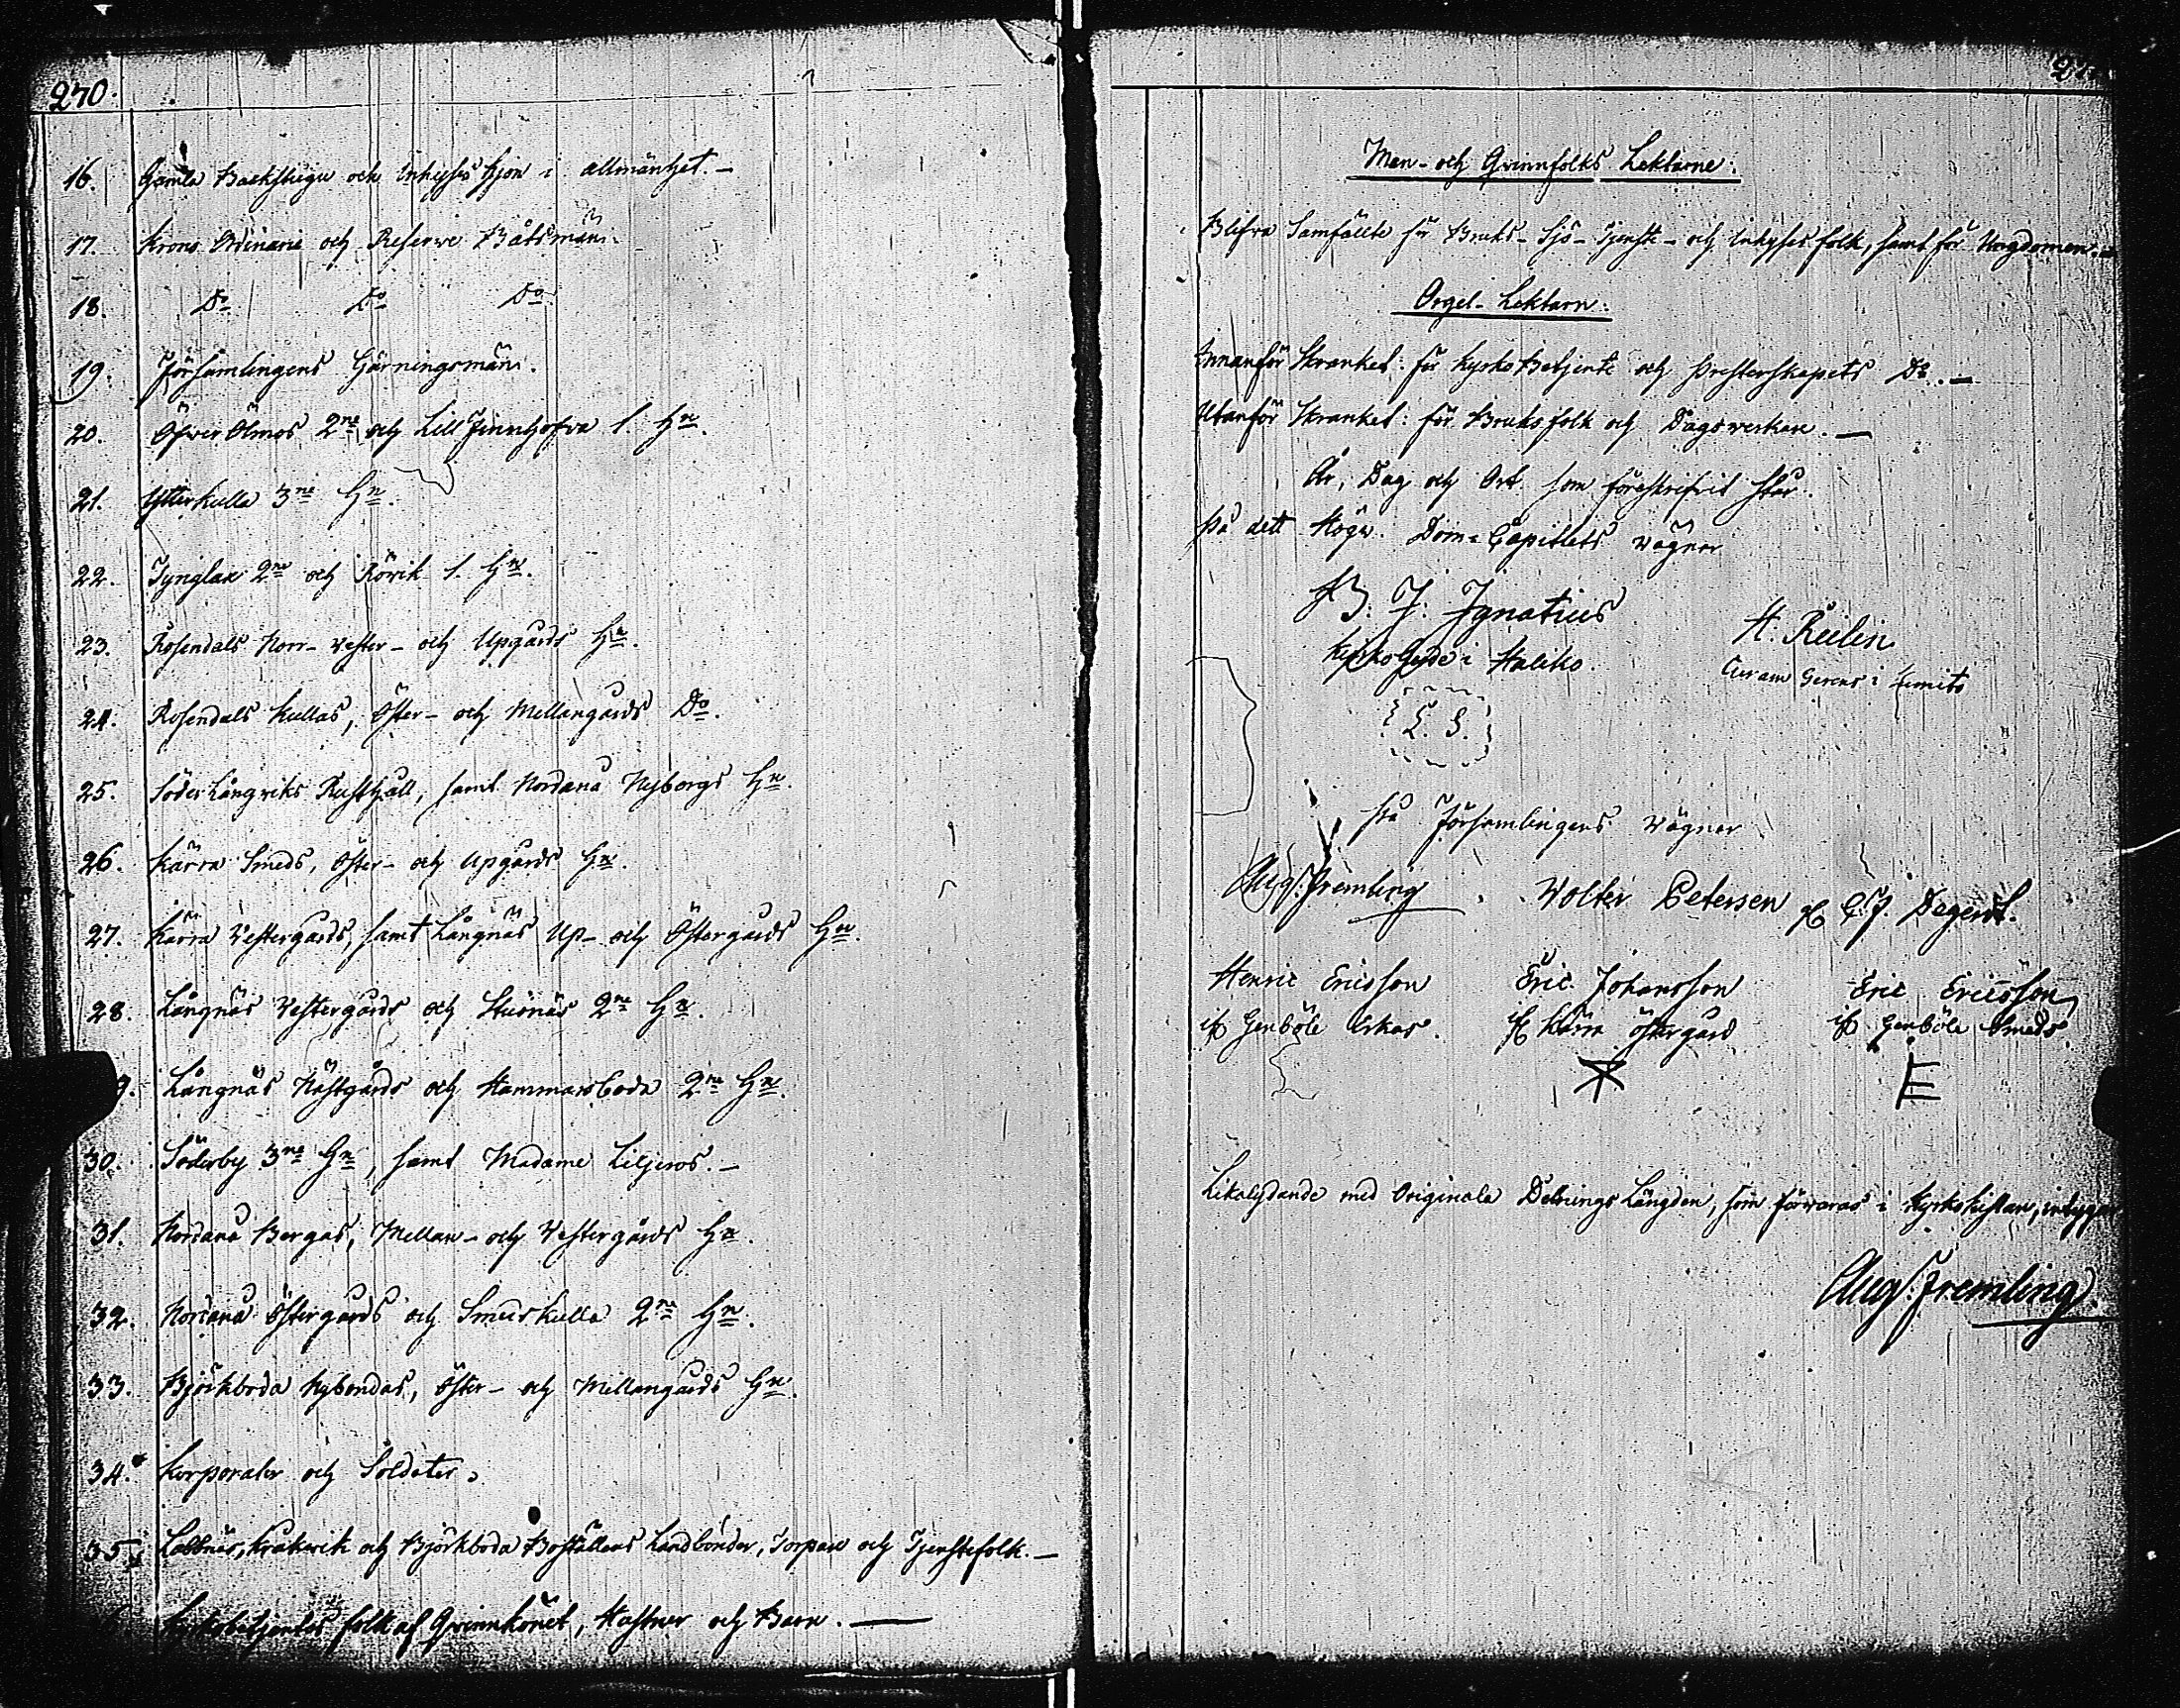 270.
16. Gamla Backstugu och Inhyses hjon i allmänhet. —
17. Krono Ordinarie och Reserve Båtsmän.
18. Do Do Do
19. Församlingens Gärningsmän.
20. Öfver Ölmos 2ne och Lill Finnhofva 1. Hn.
21. Ytterkulla 3ne Hn.
22. Tynglax 2ne och Rövik 1. Hn.
23. Rosendals Norr- Vester- och Upgårds Hn.
24. Rosendals Kullas, Öster- och Mellangårds Do.
25. Söder Långviks Rusthåll, samt Nordanå Nyborgs Hn.
26. Kärra Smeds, Öster- och Upgårds Hn.
27. Kärra Vestergårds, samt Långnäs Up- och Östergårds Hn.
28. Långnäs Vestergårds och Stusnäs 2ne Hn.
9. Långnäs Nästgårds och Hammarsboda 2ne Hn.
30. Söderby 3ne Hn, samt Madame Liljeros. —
31. Nordanå Bergas, Mellan- och Vestergårds Hn.
32. Nordanå Östergårds och Smedskulla 2ne Hn.
33. Björkboda Nybondas, Öster- och Mellangårds Hn.
34. Korporaler och Soldater.
35. Labbnäs, Kråkvik och Björkboda Boställens Landbönder, Torpare och Tjenstefolk. —
Kyrkobetjentes folk af Qvinnkönet, Hustrur och Barn. —
Man- och Qvinnfolks Lektarne:
Blifva Samfällte för Bruks- Sjö- Tjenste- och Inhyses folk, samt för Ungdomen. —
Orgel-Lektarn:
Innanför Skranket: för Kyrko Betjente och Presterskapets Do. —
Utanför Skranket: för Bruks folk och Dagsverkare. —
År, Dag och Ort som föreskrifvit står.
På dett Högv. Dom-Capitlets vägnar
B. J. Ignatius H. Relin
Kyrko Herde i Haliko. Curam Gerens i Kimito
L. S.
På Församlingens Vägnar
Aug. Fremling Wolter Petersen C. J. Degerdt.
Henric Ericsson Eric Johansson Eric Ericsson
if Genböle Erkas. if Kärra Östergård if Genböle Smeds.
Likalydande med Originala Delnings Längden, som förvaras i Kyrkokistan, intygar
Aug. Fremling.